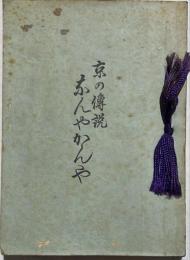 京の傳説
なんやかんや